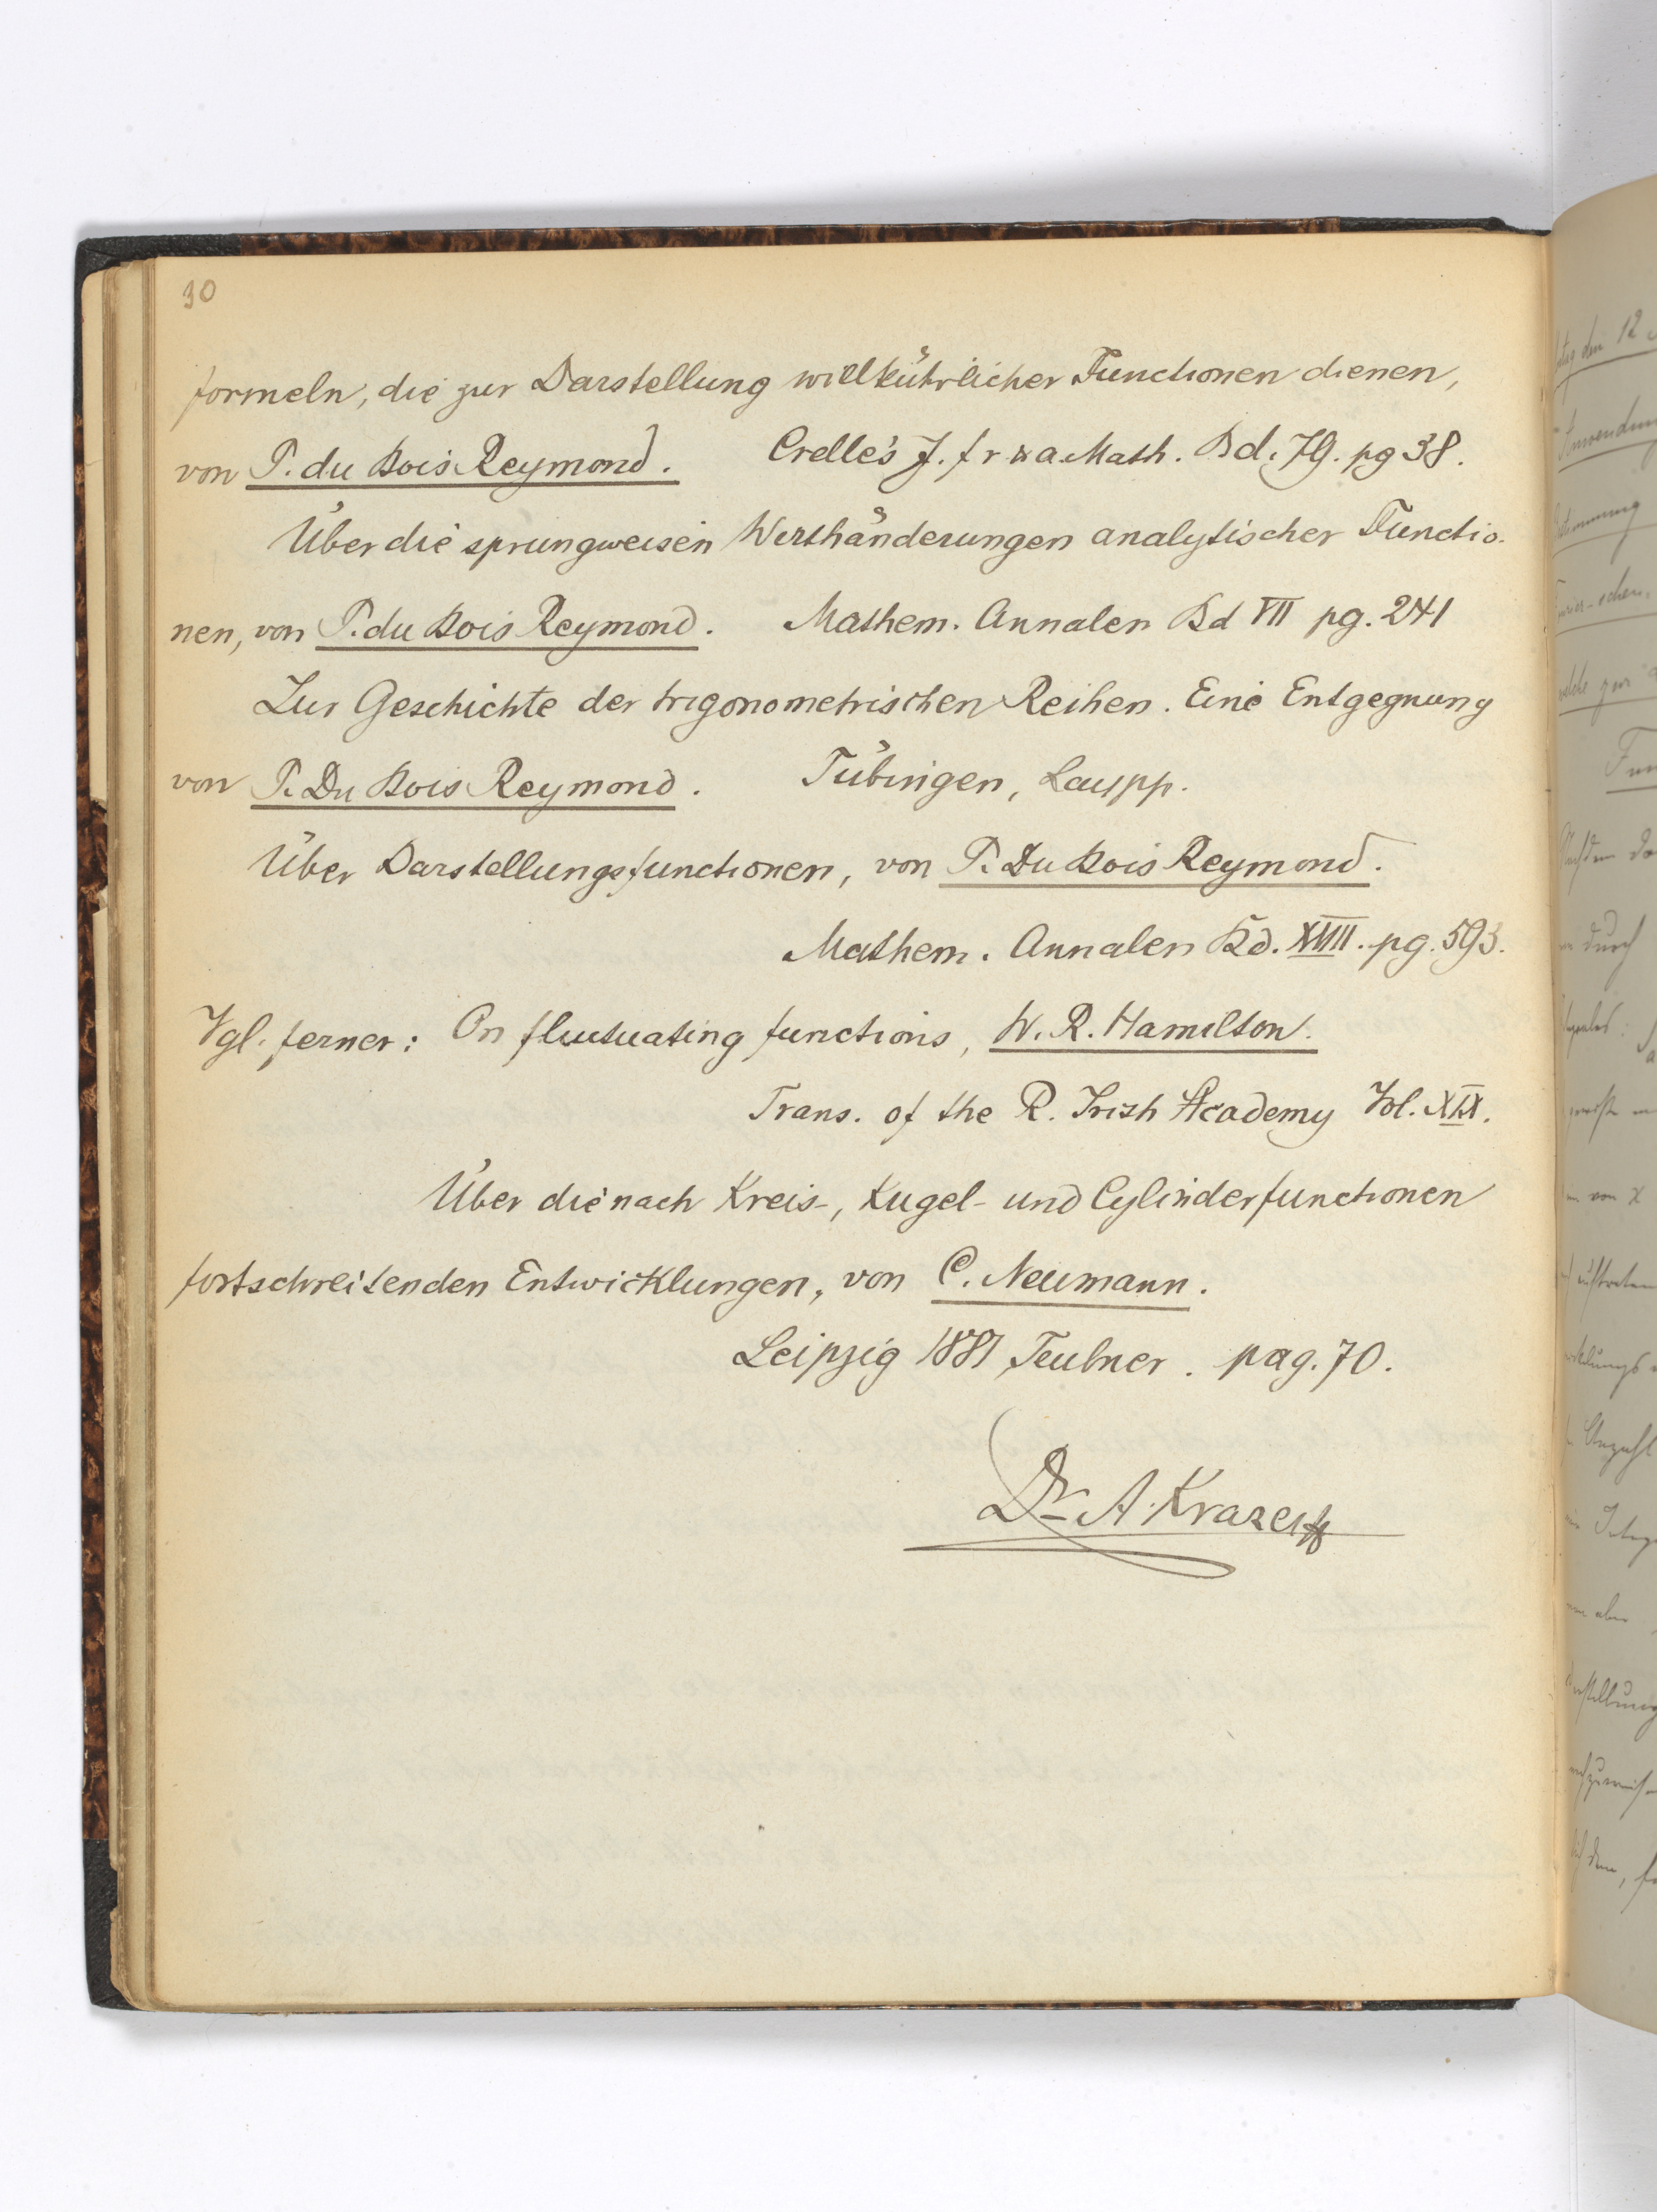 30
formeln, die zur Darstellung willkührlicher Functionen dienen,
von P. du Bois Reymond. Crelle's J. f r u a. Math. Bd. 79. pg 38.
Über die sprungweisen Werthänderungen analytischer Functio-
nen, von P. du Bois Reymond. Mathem. Annalen Bd VII pg. 241
Zur Geschichte der trigonometrischen Reihen. Eine Entgegnung
von P. Du Bois Reymond. Tübingen, Laupp.
Über Darstellungsfunctionen, von P. Du Bois Reymond.
Mathem. Annalen Bd. XVIII. pg. 593.
Vgl. ferner: On fluctuating functions, W. R. Hamilton.
Trans. of the R. Irish Academy Vol. XIX.
Über die nach Kreis-, Kugel- und Cylinderfunctionen
fortschreitenden Entwicklungen, von C. Neumann.
Leipzig 1881 Teubner. pag. 70.
Dr A. Krazer
den 12
durch
von x
aber